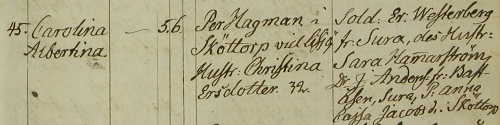 45. Carolina — 5.6. Per Hagman i Sold. Er. Westerberg
Albertina. Sköttorp vid fr. Sura, des Hustr.
Hustr. Christina Sara Hamarström
Ersdotter. 32. Dr. J. Anders. fr. Bast-
åsen, Sura, P. anna
Cajsa Jacobsd. i Sköttorp